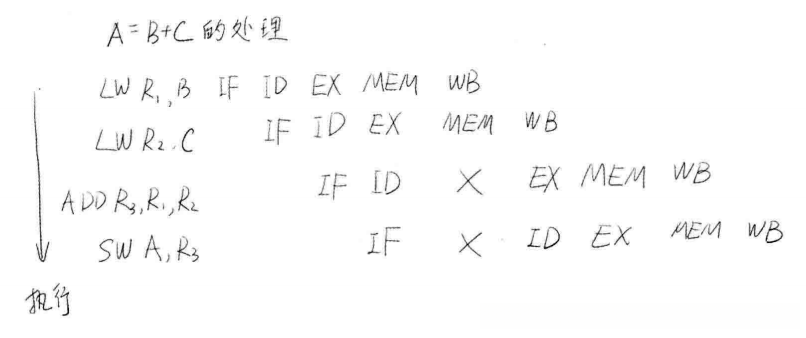 A=B+C的处理
LW R₁,B IF ID EX MEM WB
LW R₂.C IF ID EX MEM WB
ADD R₃,R₁,R₂ IF ID X EX MEM WB
SW A,R₃ IF X ID EX MEM WB
执行